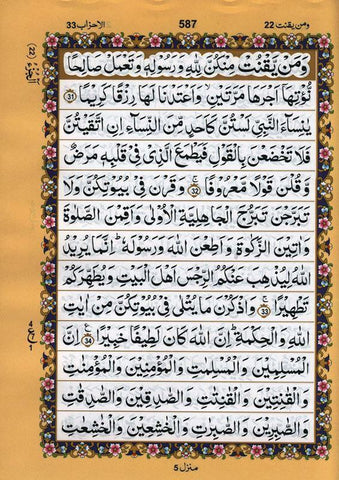 ومن یقنت 22
587
الاحزاب 33
وَمَنْ یَّقْنُتْ مِنْكُنَّ لِلّٰهِ وَرَسُوْلِهٖ وَتَعْمَلْ صَالِحًا
نُّؤْتِهَاۤ اَجْرَهَا مَرَّتَیْنِ وَاَعْتَدْنَا لَهَا رِزْقًا كَرِیْمًا 31
یٰنِسَآءَ النَّبِیِّ لَسْتُنَّ كَاَحَدٍ مِّنَ النِّسَآءِ اِنِ اتَّقَیْتُنَّ
فَلَا تَخْضَعْنَ بِالْقَوْلِ فَیَطْمَعَ الَّذِیْ فِیْ قَلْبِهٖ مَرَضٌ
وَّقُلْنَ قَوْلًا مَّعْرُوْفًا 32 وَقَرْنَ فِیْ بُیُوْتِكُنَّ وَلَا
تَبَرَّجْنَ تَبَرُّجَ الْجَاهِلِیَّةِ الْاُوْلٰی وَاَقِمْنَ الصَّلٰوةَ
وَاٰتِیْنَ الزَّكٰوةَ وَاَطِعْنَ اللّٰهَ وَرَسُوْلَهٗ ؕ اِنَّمَا یُرِیْدُ
اللّٰهُ لِیُذْهِبَ عَنْكُمُ الرِّجْسَ اَهْلَ الْبَیْتِ وَیُطَهِّرَكُمْ
تَطْهِیْرًا 33 وَاذْكُرْنَ مَا یُتْلٰی فِیْ بُیُوْتِكُنَّ مِنْ اٰیٰتِ
اللّٰهِ وَالْحِكْمَةِ ؕ اِنَّ اللّٰهَ كَانَ لَطِیْفًا خَبِیْرًا 34 اِنَّ
الْمُسْلِمِیْنَ وَالْمُسْلِمٰتِ وَالْمُؤْمِنِیْنَ وَالْمُؤْمِنٰتِ
وَالْقٰنِتِیْنَ وَالْقٰنِتٰتِ وَالصّٰدِقِیْنَ وَالصّٰدِقٰتِ
وَالصّٰبِرِیْنَ وَالصّٰبِرٰتِ وَالْخٰشِعِیْنَ وَالْخٰشِعٰتِ
منزل 5